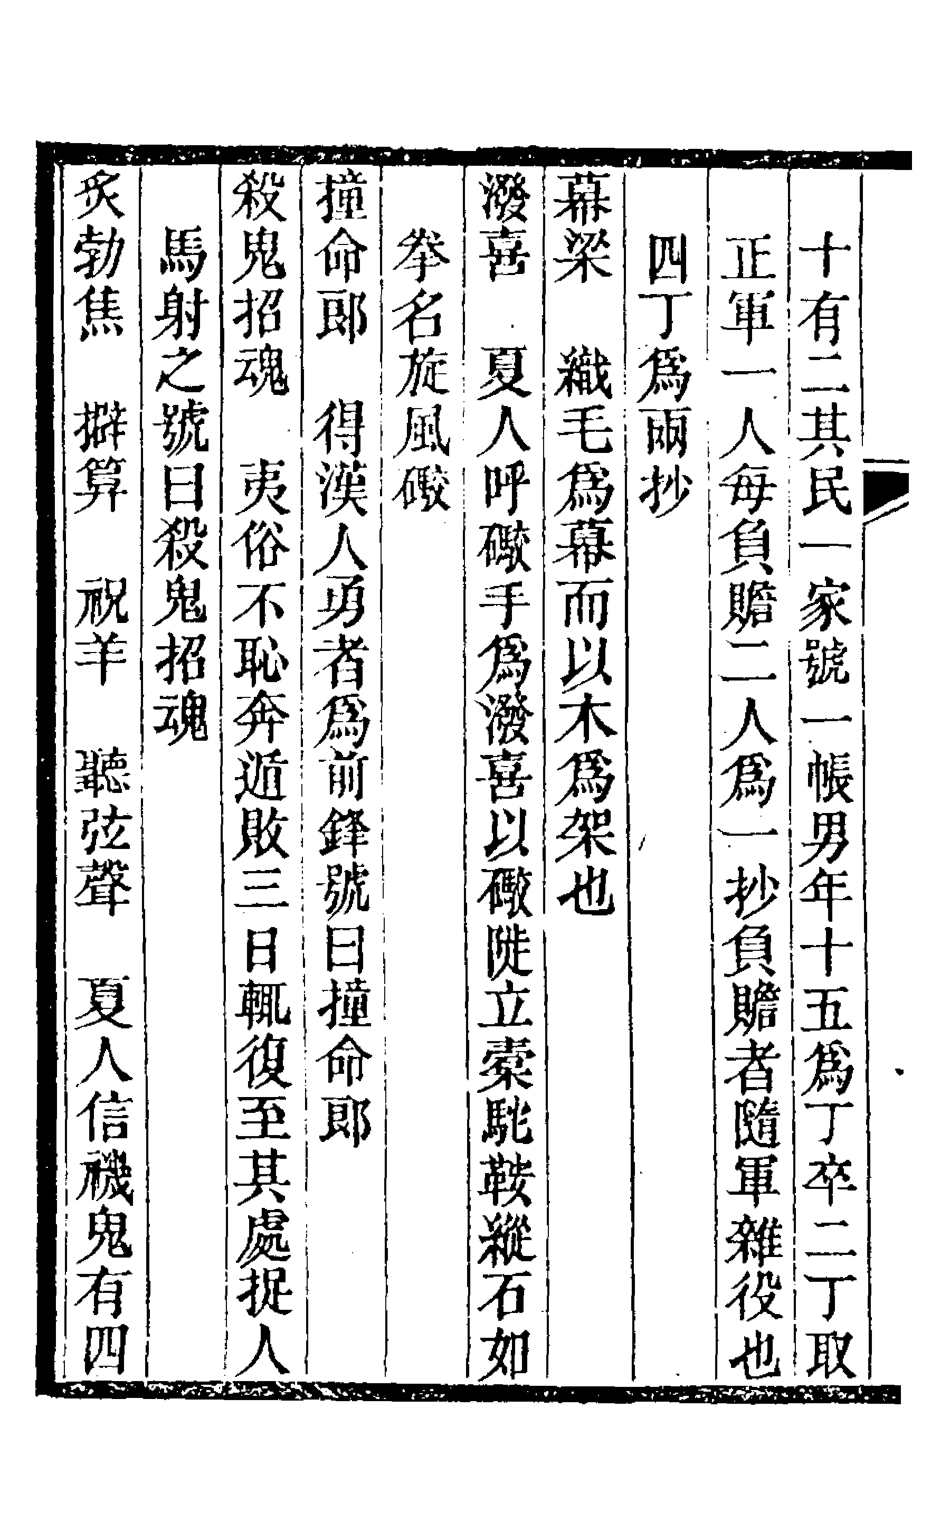 十有二其民一家號一帳男年十五爲丁卒二丁取
正軍一人每負贍二人爲一抄負贍者隨軍雜役也
四丁爲兩抄
幕梁　織毛爲幕而以木爲架也
潑喜　夏人呼礮手爲潑喜以礮陡立槖駝鞍縱石如
拳名旋風礮
撞命郎　得漢人勇者爲前鋒號曰撞命郎
殺鬼招魂　夷俗不恥奔遁敗三日輒復至其處捉人
馬射之號曰殺鬼招魂
炙勃焦　擗算　祝羊　聽弦聲　夏人信禨鬼有四